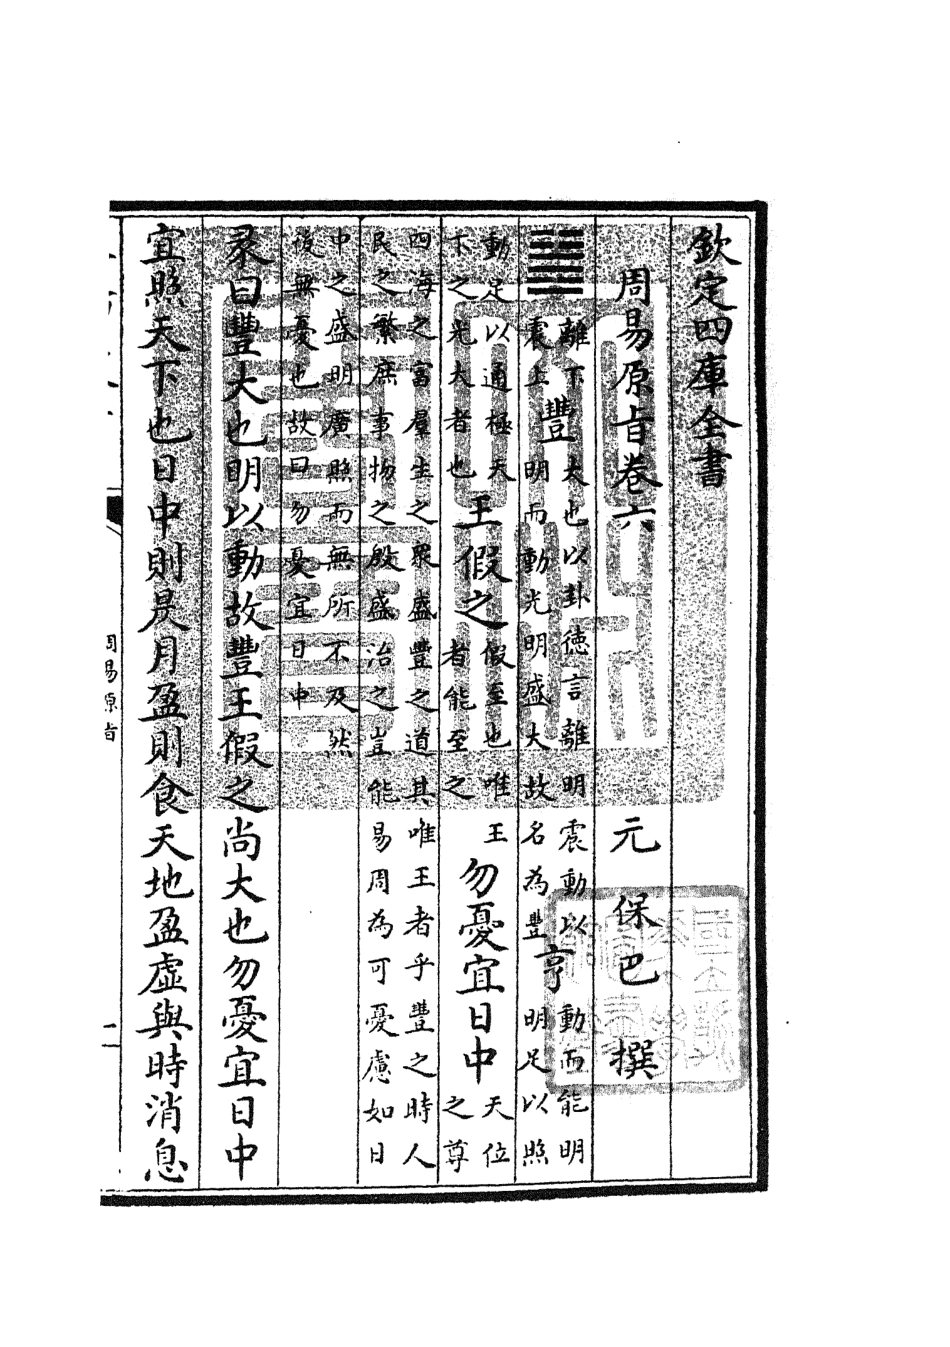 欽定四庫全書
周易原旨卷六 元 保巴 撰
䷶ 離下震上 豐 大也以卦德言離明震動以明而動光明盛大故名為豐 亨 動而能明明足以照
動足以通極天下之光大者也 王假之 假至也唯王者能至之 勿憂宜日中 天位之尊
四海之富羣生之衆盛豐之道其唯王者乎豐之時人
民之繁庶事物之殷盛治之豈能易周為可憂慮如日
中之盛明廣照而無所不及然
後無憂也故曰勿憂宜日中
彖曰豐大也明以動故豐王假之尚大也勿憂宜日中
宜照天下也日中則昃月盈則食天地盈虛與時消息
周易原旨